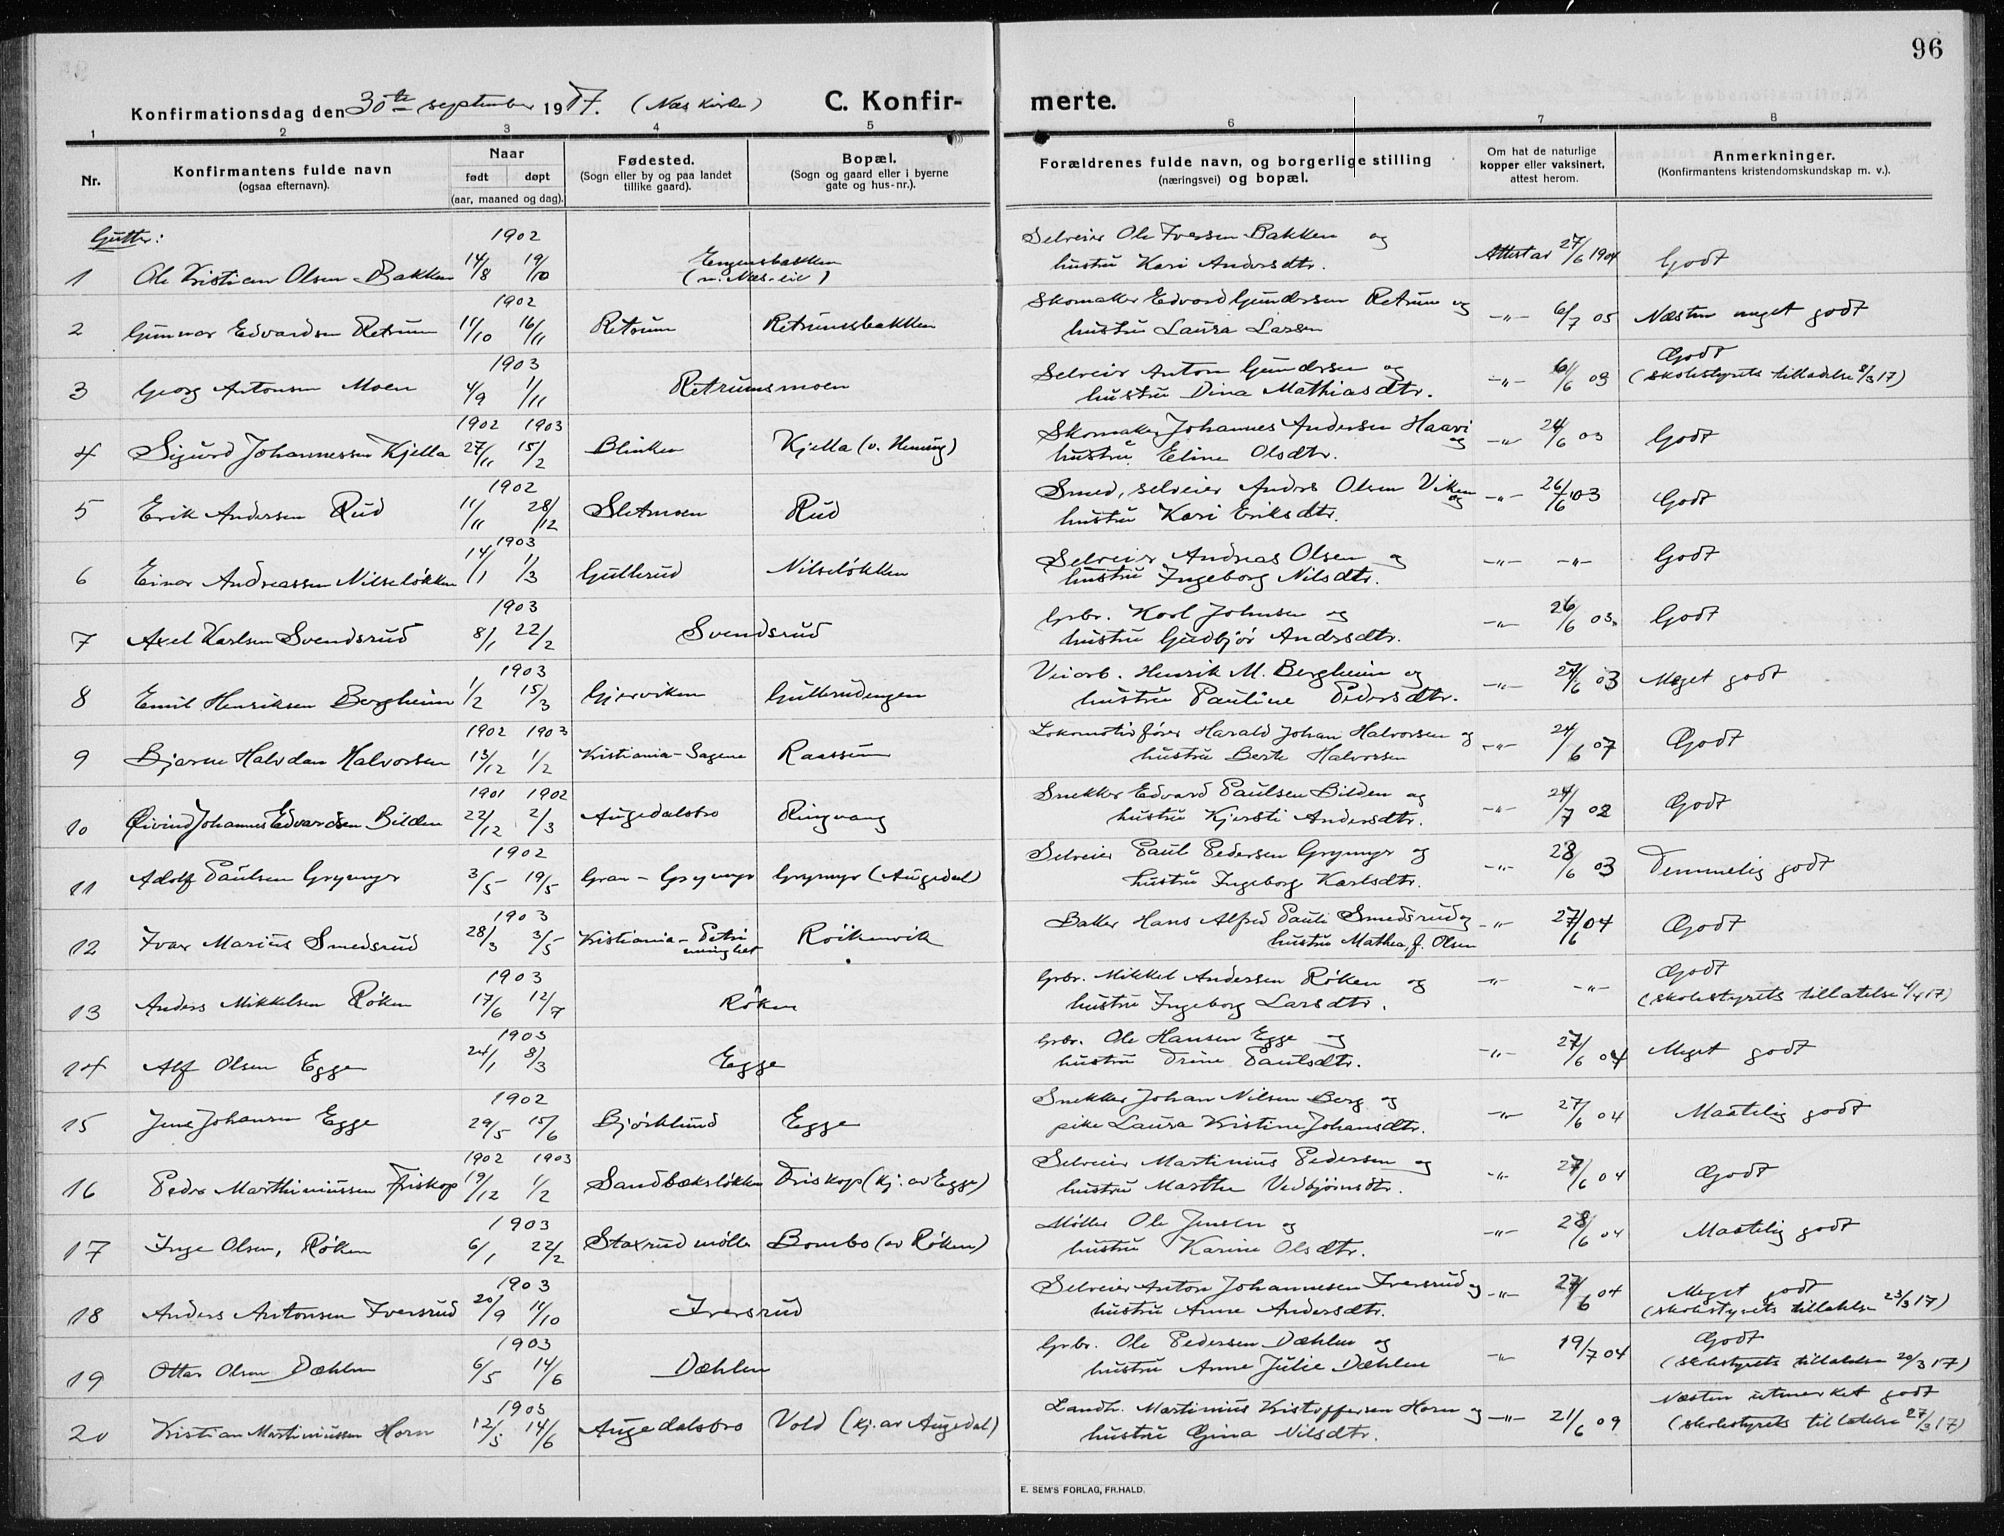 96
Konfirmationsdag den 30te september 1917. (Næs kirke) C. Konfir- merte.
1 2 3 4 5 6 7 8
Nr.
Konfirmantens fulde navn
(ogsaa efternavn).
Naar
født døpt
(aar, maaned og dag).
Fødested.
(Sogn eller by og paa landet
tillike gaard).
Bopæl.
(Sogn og gaard eller i byerne
gate og hus-nr.).
Forældrenes fulde navn, og borgerlige stilling
(næringsvei) og bopæl.
Om hat de naturlige
kopper eller vaksinert,
attest herom.
Anmerkninger.
(Konfirmantens kristendomskundskap m. v.).
Gutter:
1902
Selveier Ole Iversen Bakken og
1 Ole Kristian Olsen Bakken 14/8 19/10 Engensbakken
(u. Næs-eie)
hustru Kari Andersdtr. Attest av 27/6 1904 Godt
1902
Skomaker Edvard Gundersen Retrum og
2 Gunnar Edvardsen Retrum 11/10 16/11 Retrum Retrumsbakken hustru Laura Larsen -"- 6/7 05 Næsten meget godt
1903
Selveier Anton Gundersen og
3 Georg Antonsen Moen 4/9 1/11 Retrumsmoen hustru Dina Mathiasdtr. -"- 6/6 03 Godt
(skolestyrets tilladelse 8/3 17)
1902 1903
Skomaker Johannes Andersen Haavi og
4 Sigurd Johannessen Kjella 27/11 15/2 Blinken Kjella (v. Hennig) hustru Eline Olsdtr. -"- 24/6 03 Godt
1902
Smed, selveier Anders Olsen Viken og
5 Erik Andersen Rud 11/11 28/12 Sletmoen Rud hustru Kari Eriksdtr. -"- 26/6 03 Godt
1903
Selveier Andreas Olsen og
6 Einar Andreassen Nilseløkken 14/1 1/3 Gullerud Nilseløkken hustru Ingeborg Nilsdtr. -"- -"- Godt
1903
Grbr. Karl Johnsen og
7 Axel Karlsen Svendsrud 8/1 22/2 Svendsrud hustru Gudbjør Andersdtr. -"- 26/6 03. Godt
1903
Veiarb. Henrik M. Bergheim og
8 Emil Henriksen Bergheim 1/2 15/3 Gjerviken Gullerudengen hustru Pauline Pedersdtr. -"- 27/6 03 Meget godt
1902 1903
Lokomotivfører Harald Johan Halvorsen og
9 Bjarne Halvdan Halvorsen 13/12 1/2 Kristiania-Sagene Raassum hustru Berte Halvorsen -"- 24/6 07 Godt
1901 1902
Snekker Edvard Paulsen Bilden og
10 Øivind Johannes Edvardsen Bilden 22/12 2/3 Augedalsbro Ringvang hustru Kjersti Andersdtr. -"- 24/7 02 Godt
1902
Selveier Paul Pedersen Grymyr og
11 Adolf Paulsen Grymyr 3/5 19/5 Gran - Grymyr Grymyr (Augedal) hustru Ingeborg Karlsdtr. -"- 28/6 03 Temmelig godt
1903
Baker Hans Alfred Pauli Smedsrud og
12 Ivar Marius Smedsrud 28/3 3/5 Kristiania - Petri
menighet Røikenvik hustru Mathea, f. Olsen -"- 27/6 04 Godt
1903
Grbr. Mikkel Andersen Røken og
13 Anders Mikkelsen Røken 17/6 12/7 Røken hustru Ingeborg Larsdtr. -"- -"- Godt
(skolestyrets tillatelse 4/4 17)
1903
Grbr. Ole Hansen Egge og
14 Alf Olsen Egge 24/1 8/3 Egge hustru Trine Paulsdtr. -"- 27/6 04 Meget godt
1902
Snekker Johan Nilsen Berg og
15 Jens Johansen Egge 29/5 15/6 Bjørklund Egge pike Laura Kristine Johansdtr. -"- 27/6 04 Maatelig godt
1902 1903
Selveier Martinius Pedersen og
16 Peder Marthiniussen Friskop 19/12 1/2 Sandbæksløkken Friskop (kj. av Egge) hustru Marthe Vedbjørnsdtr. -"- 27/6 04 Godt
1903
Møller Ole Jensen og
17 Inge Olsen, Røken 6/1 22/2 Staxrud mølle Bombo (av Røken) hustru Karine Olsdtr. -"- 28/6 04 Maatelig godt
1903
Selveier Anton Johannesen Iversrud og
18 Anders Antonsen Iversrud 20/9 11/10 Iversrud hustru Anne Andersdtr. -"- 27/6 04 Meget godt
(skolestyrets tillatelse 23/3 17)
1903
Grbr. Ole Pedersen Dæhlen og
19 Ottar Olsen Dæhlen 6/5 14/6 Dæhlen hustru Anne Julie Dæhlen -"- 19/7 04 Godt
(skolestyrets tillatelse 20/3 17)
1903
Landh. Martinius Kristoffersen Horn og
20 Kristian Martiniussen Horn 12/5 14/6 Augedalsbro Vold (kj. av Augedal) hustru Gina Nilsdtr. -"- 21/6 09 Næsten utmerket godt
(skolestyrets tillatelse 27/3 17)
E. SEM'S FORLAG, FR.HALD.